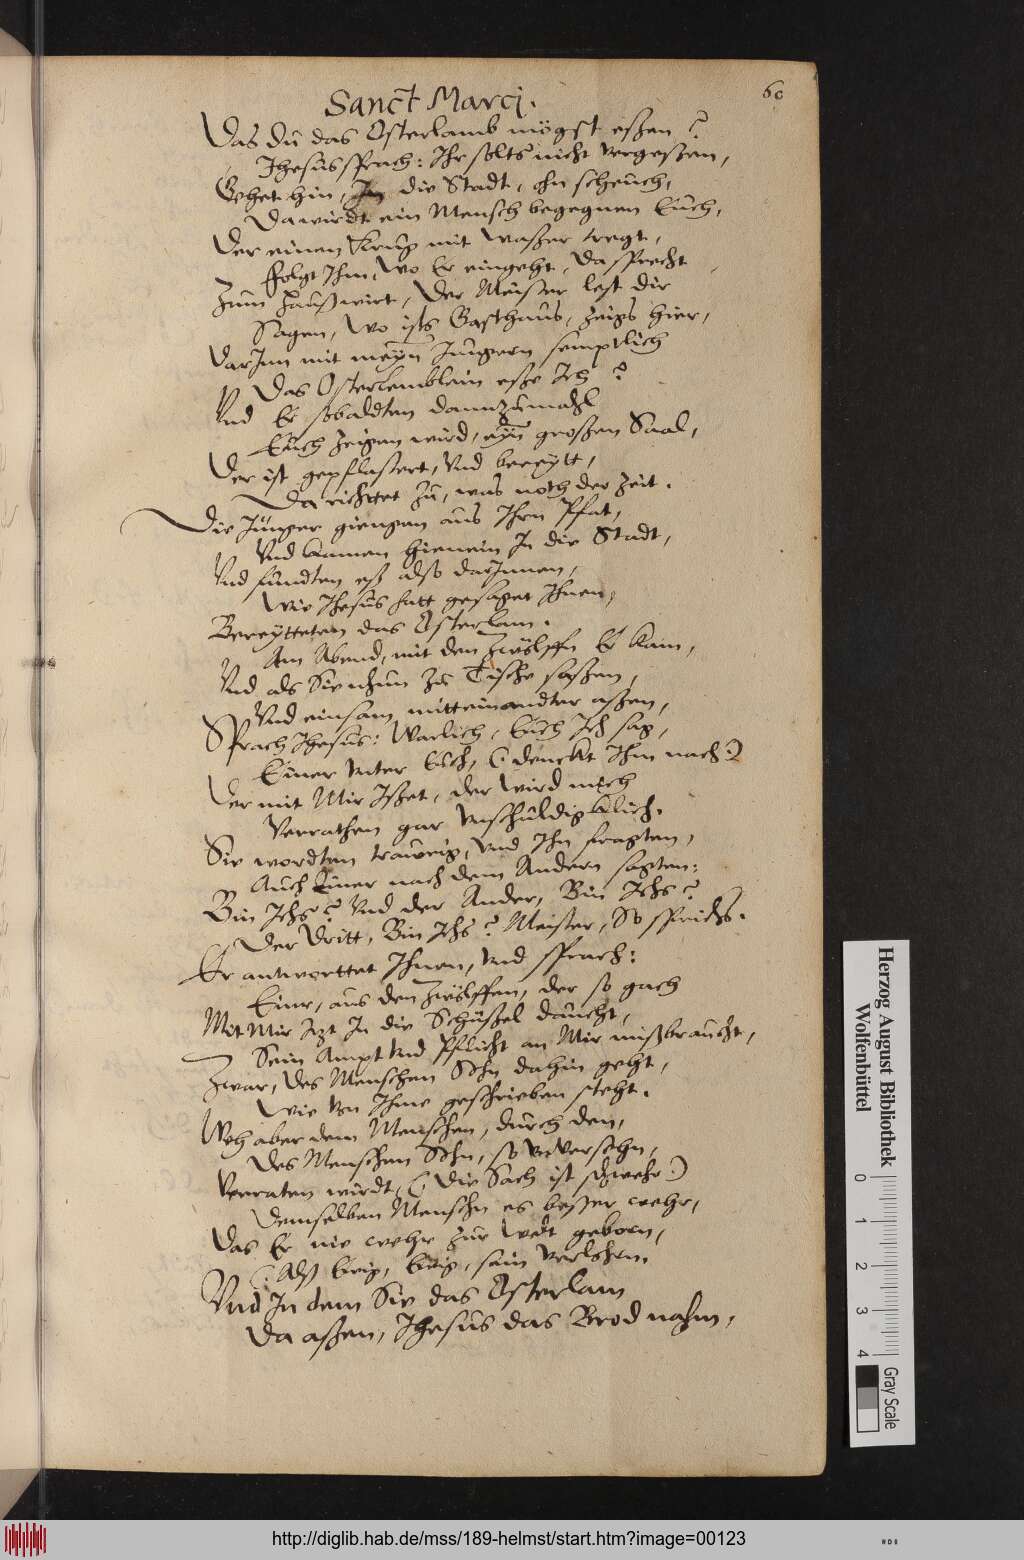 60
Sanct Marcj.
Das du das Osterlamb mögst eßen?
Jhesus sprach: Ihr solts nicht vergeßen,
Gehet hin, In die Stadt, ohn scheuch,
Da wirdt ein Mensch begegnen Euch,
Der einen Krug mit Waßer tregt,
Folgt Ihm, Wo Er eingeht, da sprecht
Zum Haußwirt, Der Meister lest dir
Sagen, Wo ists Gasthaus, Zeigs hier,
Darinn mit meyn Jungern semptlich
Das Osterlemblein eße Ich?
Vnd Er sobaldten dannzumahl
Euch Zeigen wird, eyn großen Saal,
Der ist gepflastert, Vnd bereytt,
Da richttet Zu, was noth der Zeit.
Die Jünger giengen aus Ihrn Pfat,
Vnd kamen hienein In die Stadt,
Vnd fundten eß also darInnen,
Wie Jhesus hatt gesaget Ihnen,
Bereytteten das Osterlam.
Am Abend, mit den Zwölffn Er kam,
Vnd als Sie nhun Zu Tische saßen,
Vnd einsam mitteinandter aßen,
Sprach Jhesus: Warlich, Euch Ich sag,
Einer Vnter Euch, (: denckt Ihm nach:)
Der mit Mir Ißet, der Wird mich
Verrathen gar Vnschuldigklich.
Sie wordten traurig, Vnd Ihn fragten,
Auch Einer nach dem Andern sagten:
Bin Ichs? Vnd der Ander, Bin Ichs?
Der Dritt, Bin Ichs? Meister, So sprichs.
Er antworttet Ihnen, Vnd sprach:
Einr, aus den Zwölffen, der so gach
Mit Mir Izt In die Schüßel daucht,
Sein Ampt Vnd Pflicht an Mir mißbraucht,
Zwar, des Menschen Sohn dahin geht,
Wie Von Ihme geschrieben steht.
Weh aber dem Menschen, durch den,
Des Menschen Sohn, so Vnversehn,
Verraten wirdt, (: Die Sach ist schwehr:)
Demselben Menschn es beßer wehr,
Das Er nie wehr Zur Welt geborn,
(: Alß Ewig, Ewig, sein Verlohrn.
Vnd In dem Sie das Osterlam
Da aßen, Jhesus das Brod nahm,
Herzog August Bibliothek
Wolfenbüttel
0 1 2 3 4
Gray Scale
http://diglib.hab.de/mss/189-helmst/start.htm?image=00123